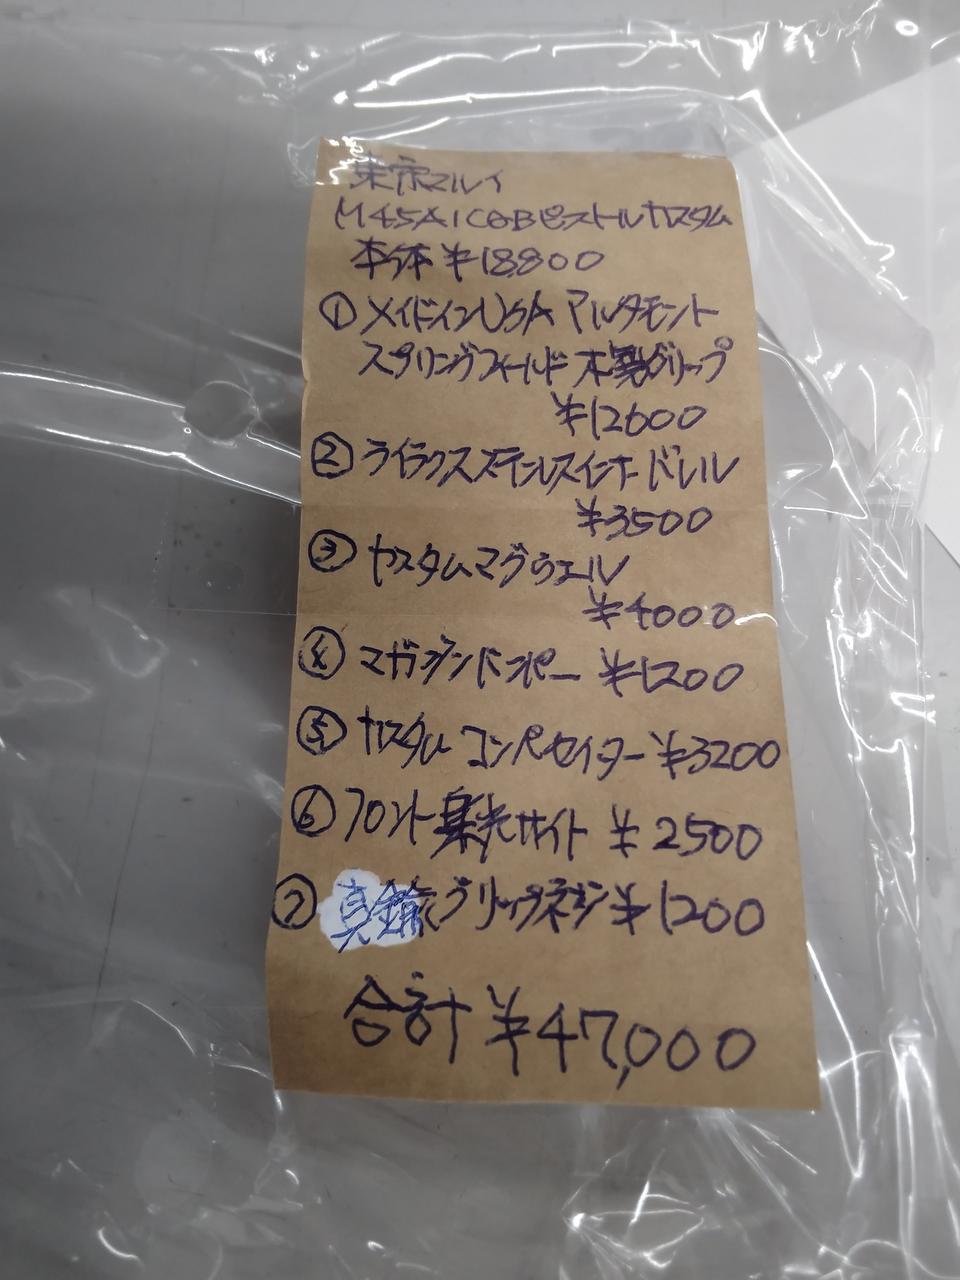 東京マルイ
M45A1CQBピストルカスタム
本体 ¥18,800
① メイドインUSA アルタモント
スプリングフィールド 木製グリップ
¥12600
② ライラクスステンレスインナーバレル
¥3500
③ カスタムマグウエル
¥4000
④ マガジンバンパー ¥1200
⑤ カスタム コンペセイター ¥3200
⑥ フロント集光サイト ¥2500
⑦ 真鍮グリップネジ ¥1200
合計 ¥47,000